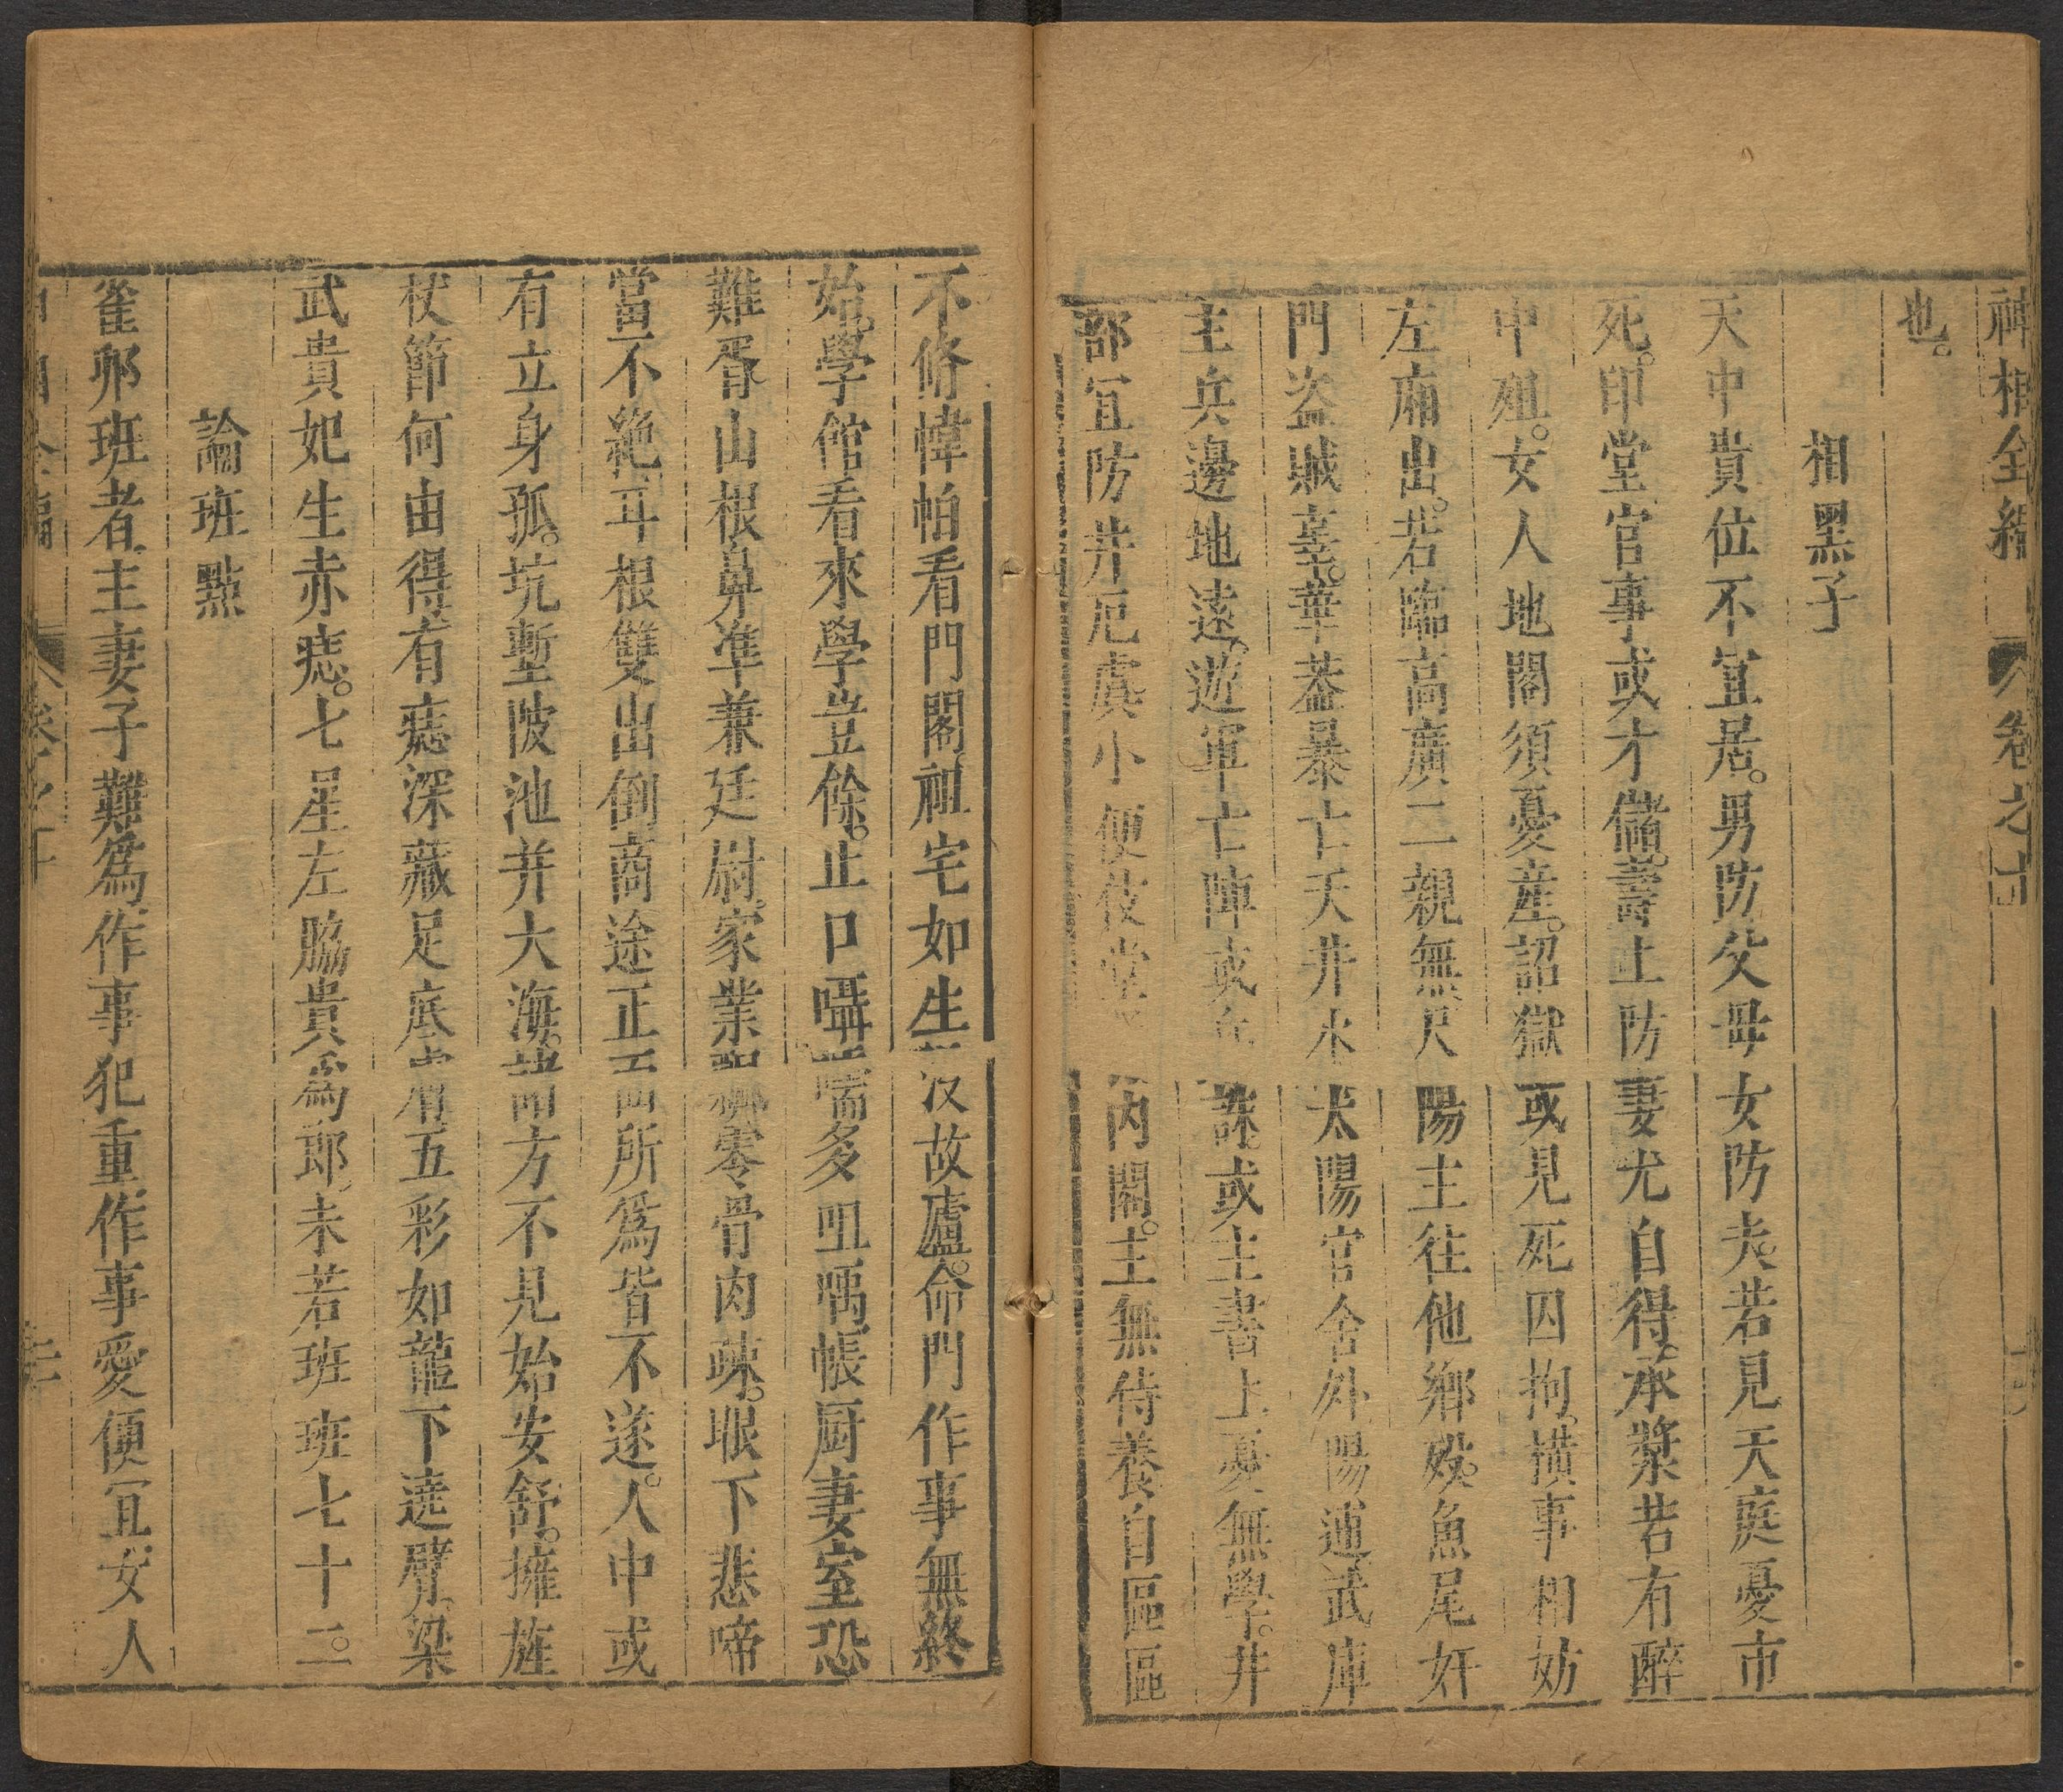 神相全編 卷之十
也。
相黑子
天中貴位不宜居。男防父母女防夫。若見天庭憂市
死。印堂官事或才儲。壽上防妻尤自得。承漿若有醉
中殂。女人地閣須憂產。詔獄或見死囚拘。橫事相妨
左廂出。若臨高廣二親無。尺陽主往他鄉歿。魚尾奸
門盜賊辜。華葢暴亡天井水。太陽官舍外陽逋。武庫
主兵邊地遠。遊軍亡陣或 誅。或主書上憂無學。井
部宜防井厄虞。小便伎堂 丙閣。主無侍養自區區
不修幃帕看門閣。祖宅如生 没故廬。命門作事無終
始。學館看來學豈餘。止口囁 嚅多咀噣。帳厨妻室恐
難胥。山根鼻凖兼廷尉。家業 零骨肉疎。眼下悲啼
當不絶。耳根雙出倒商途。正 面所爲皆不遂。人中或
有立身孤。坑塹陂池并大海。 方不見始安舒。擁旌
杖節何由得。有痣深藏足底 五彩如龍下遶臂。梁
武貴妃生赤痣。七星左脇貴爲郎。未若班班七十二。
論班點
雀夘班者。主妻子難爲。作事犯重。作事愛便宜。女人